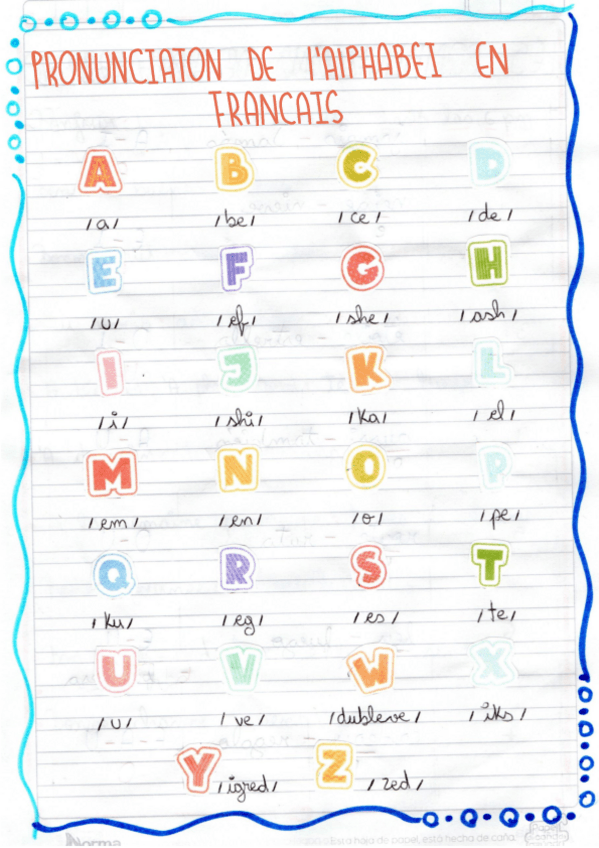 PRONUNCIATON DE l'AlPHABEI EN
FRANCAIS
A B C D
/a/ /be/ /ce/ /de/
E F G H
/u/ /ef/ /she/ /ash/
I J K L
/i/ /shi/ /ka/ /el/
M N O P
/em/ /en/ /o/ /pe/
Q R S T
/ku/ /eg/ /es/ /te/
U V W X
/u/ /ve/ /dubleve/ /iks/
Y /igred/ Z /zed/
Norma
Esta hoja de papel, está hecha de caña.